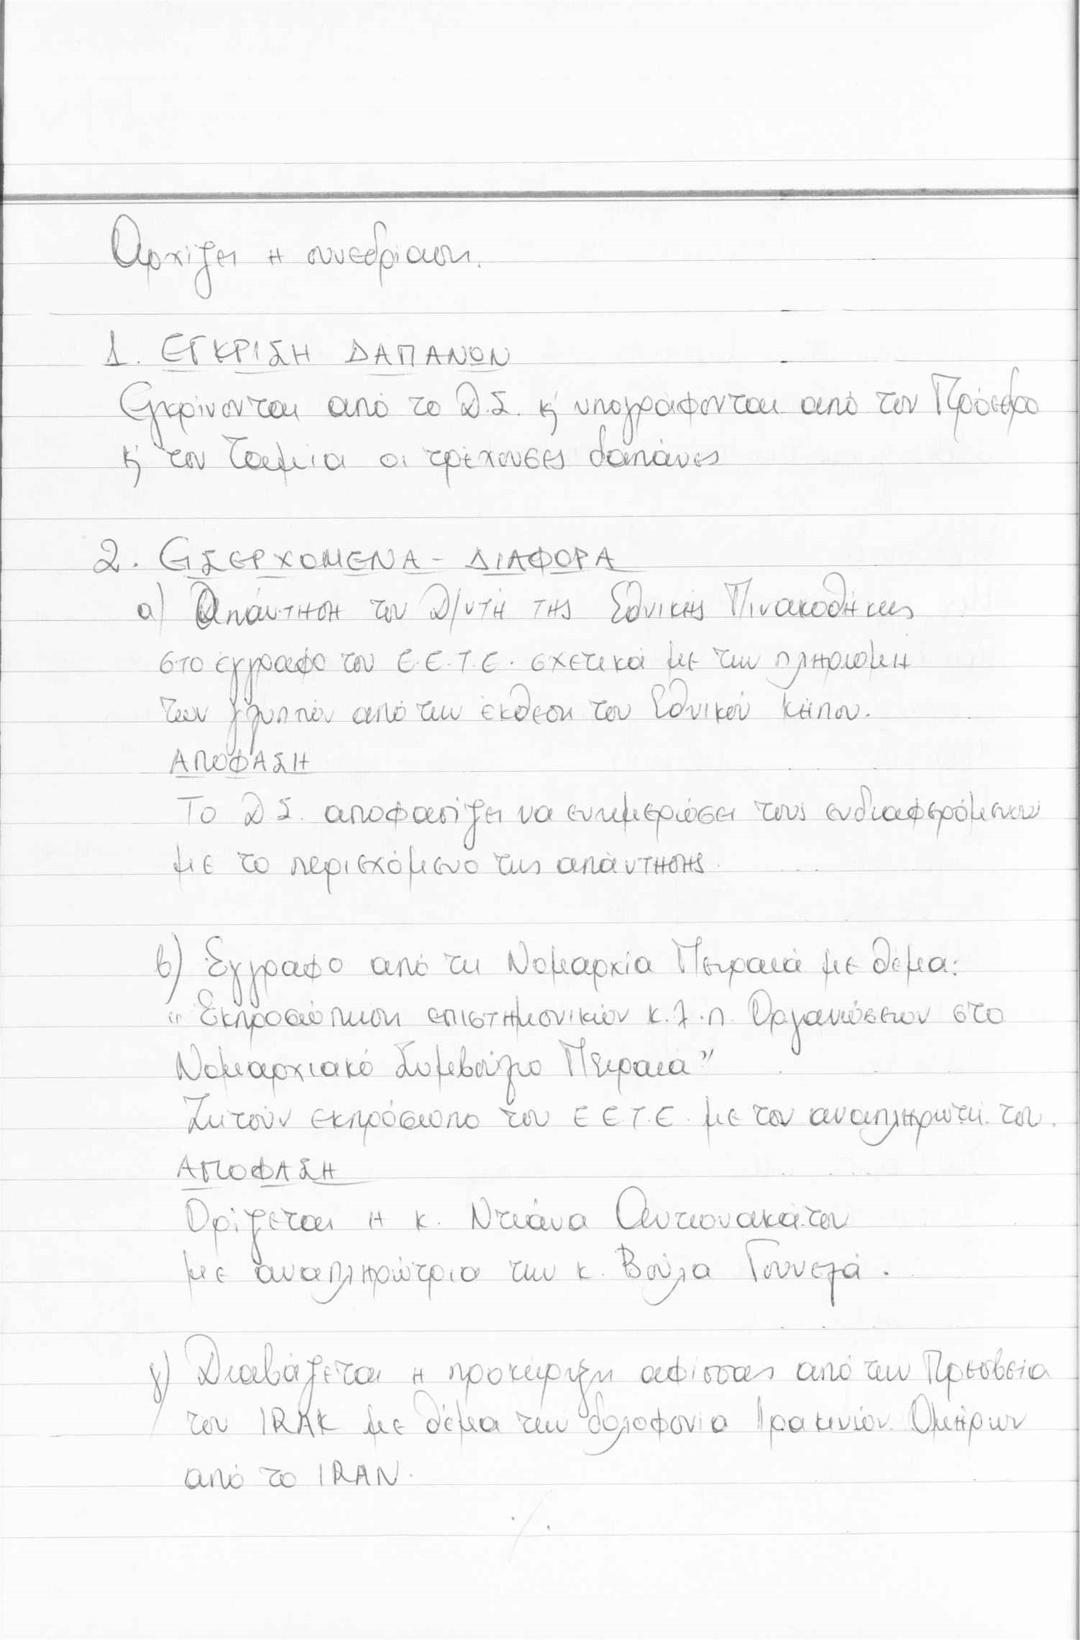 Αρχίζει η συνεδρίαση.
1. ΕΓΚΡΙΣΗ ΔΑΠΑΝΩΝ
Εγκρίνονται από το Δ.Σ. κ' υπογράφονται από τον Πρόεδρο
κ' τον Ταμία οι τρέχουσες δαπάνες
2. ΕΙΣΕΡΧΟΜΕΝΑ - ΔΙΑΦΟΡΑ
α) Απάντηση του Δ/ντή της Εθνικής Πινακοθήκης
στο έγγραφο του Ε.Ε.Τ.Ε. σχετικά με την πληρωμή
των γλυπτών από την έκθεση του Εθνικού Κήπου.
ΑΠΟΦΑΣΗ
Το Δ.Σ. αποφασίζει να ενημερώσει τους ενδιαφερόμενους
με το περιεχόμενο της απάντησης.
β) Έγγραφο από τη Νομαρχία Πειραιά με θέμα:
"Εκπροσώπηση επιστημονικών κ.λ.π. Οργανώσεων στο
Νομαρχιακό Συμβούλιο Πειραιά"
Ζητούν εκπρόσωπο του Ε.Ε.Τ.Ε. με τον αναπληρωτή του.
ΑΠΟΦΑΣΗ
Ορίζεται η κ. Ντιάνα Αντωνακάτου
με αναπληρώτρια την κ. Βούλα Γουνελά.
γ) Διαβάζεται η προκήρυξη αφίσσας από την Πρεσβεία
του IRAK με θέμα την δολοφονία Ιρακινών Ομήρων
από το IRAN.